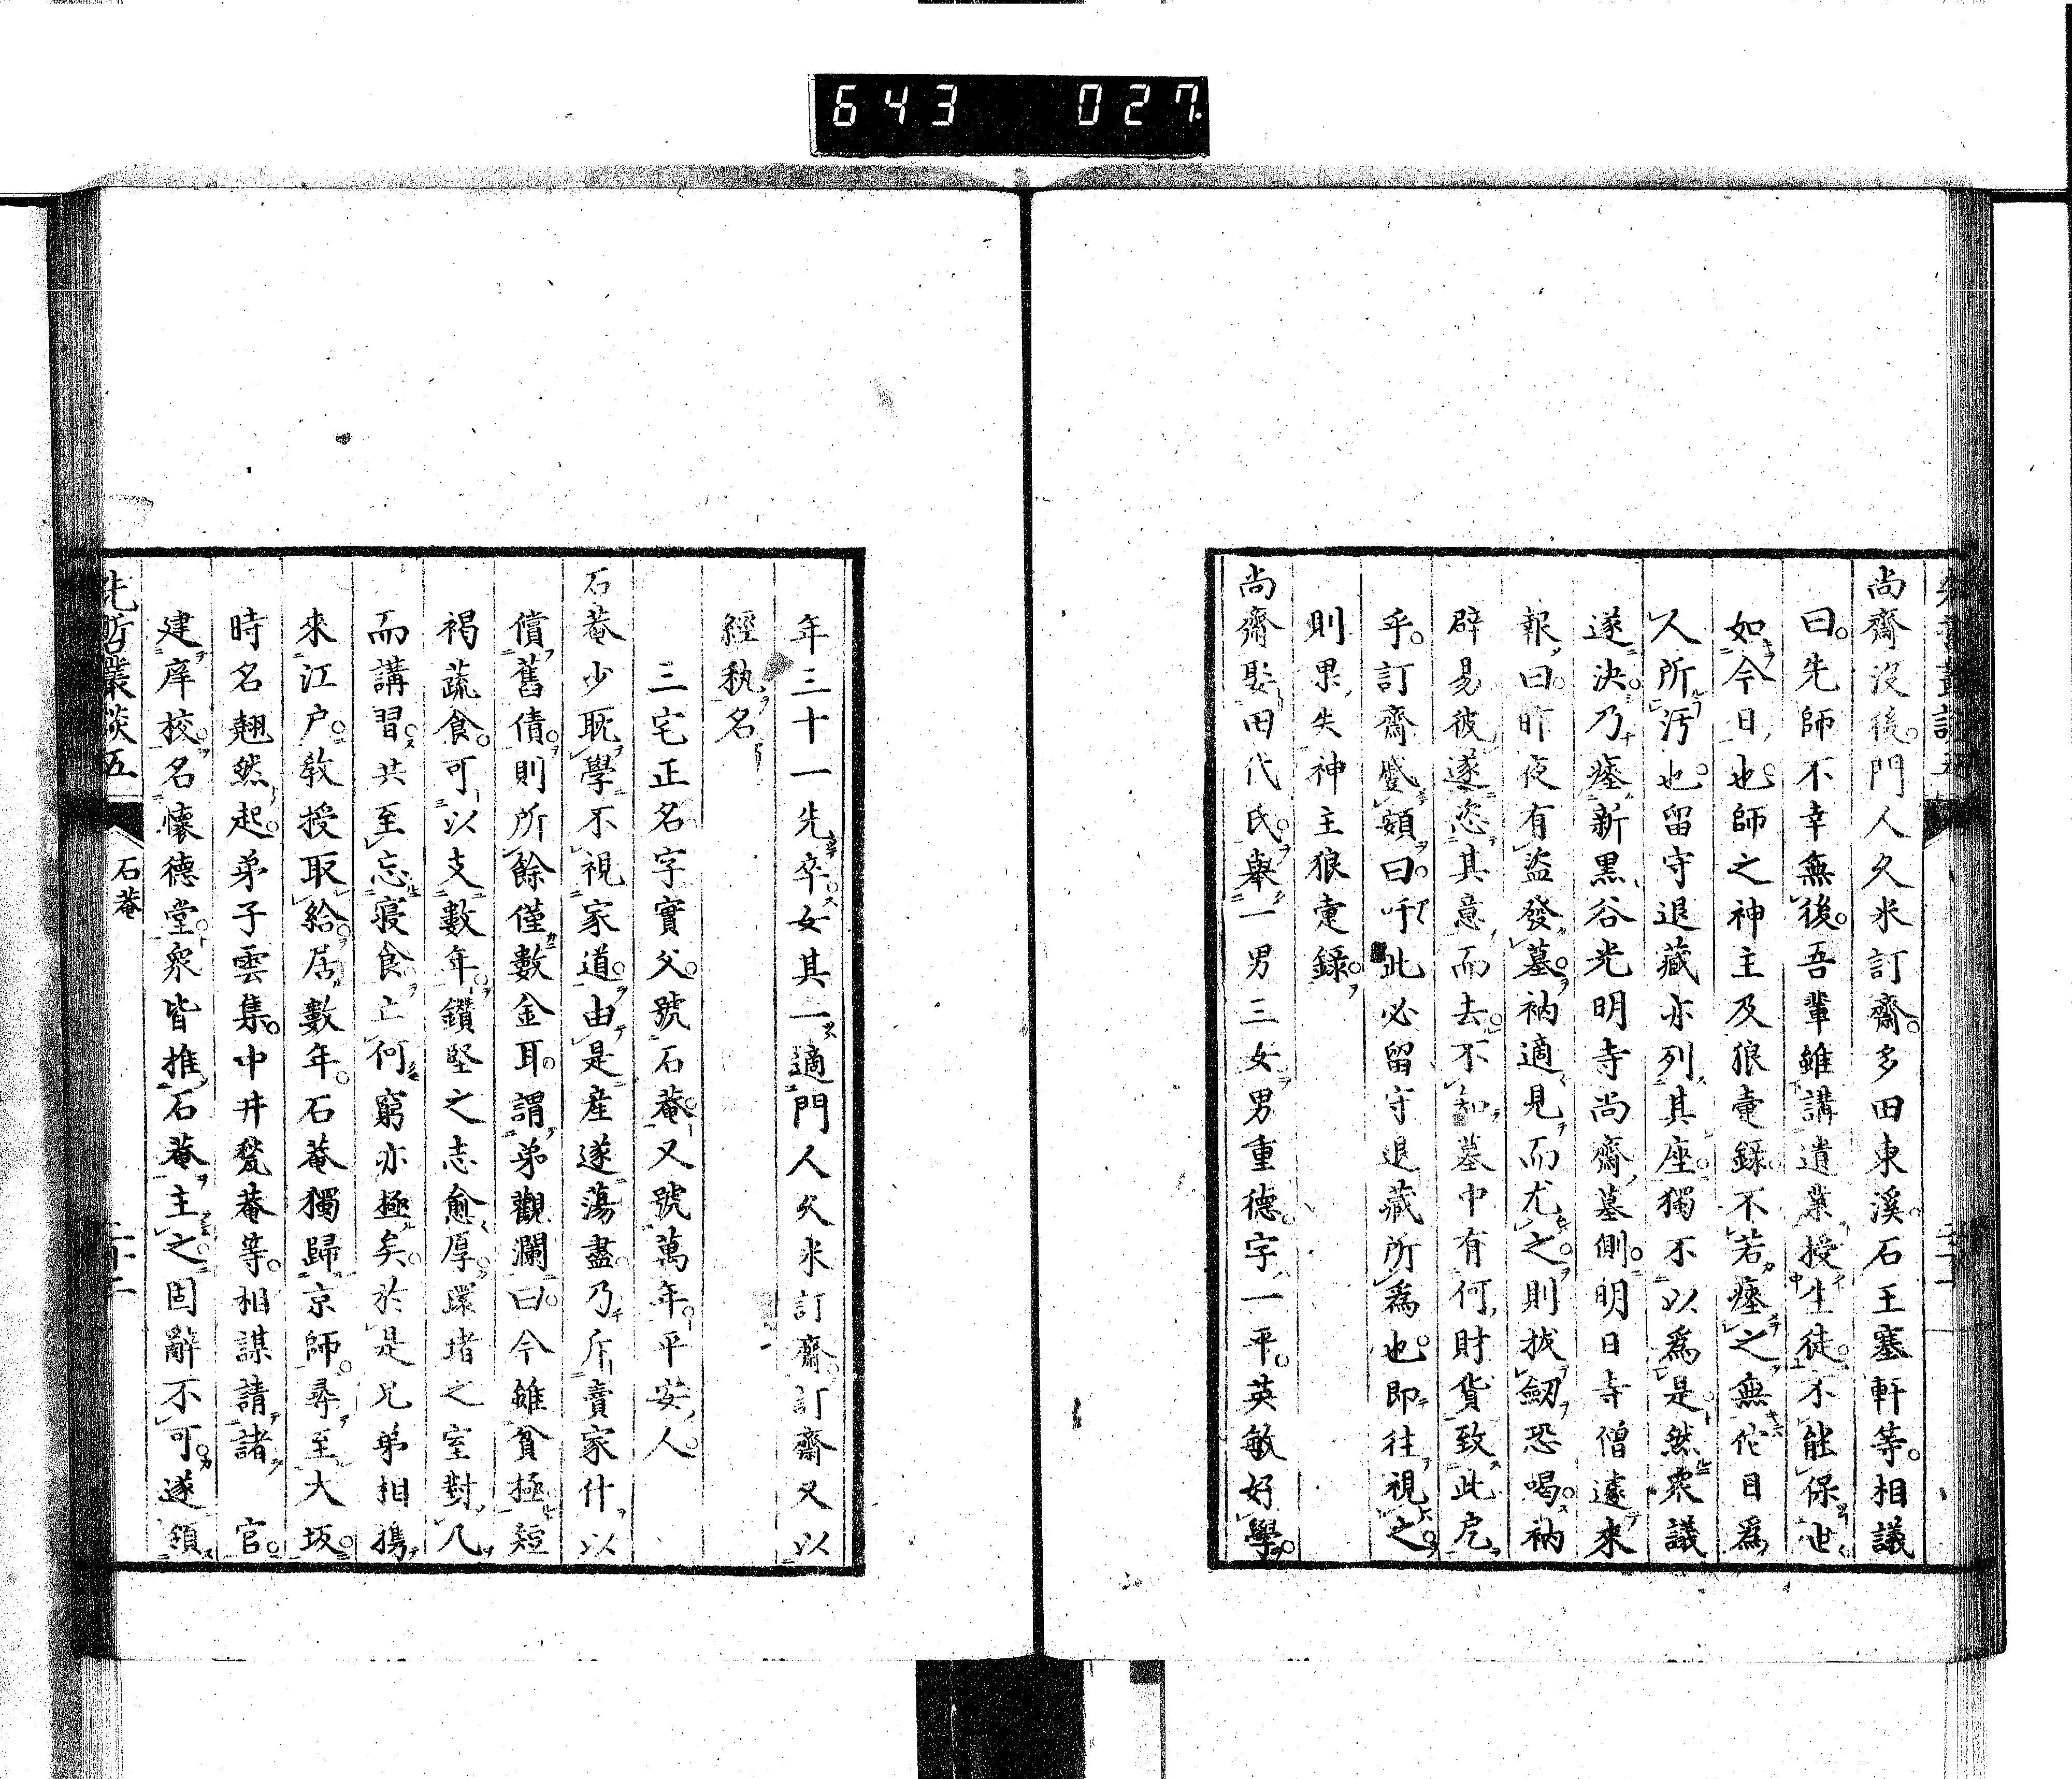 643 027
尚齋沒後。門人久米訂齋。多田東溪。石王塞軒等。相議
曰。先師不幸無後。吾輩雖講遺業授生徒。不能保世
如今日也。師之神主及狼疐錄。不若瘞之無佗日爲
人所汚也。留守退藏亦列其座。獨不以爲是。然衆議
遂決。乃瘞新黑谷光明寺尚齋墓側。明日寺僧遽來
報曰。昨夜有盜發墓。衲適見而尤之。則拔劒恐喝。衲
辟易。彼遂恣其意而去。不知墓中有何財貨致此戹
乎。訂齋蹙頞曰。吁此必留守退藏所爲也。即往視之。
則果失神主狼疐錄。
尚齋娶田代氏。舉一男三女。男重德。字一平。英敏好學。
年三十一先卒。女其一適門人久米訂齋。訂齋又以
經執名
三宅正名。字實父。號石菴。又號萬年。平安人。
石菴少耽學。不視家道。由是產遂蕩盡。乃斥賣家什。以
償舊債。則所餘僅數金耳。謂弟觀瀾曰。今雖貧極。短
褐蔬食。可以支數年。鑽堅之志愈厚。環堵之室對几
而講習。共至忘寢食。亡何窮亦極矣。於是兄弟相攜
來江戶。敎授取給。居數年。石菴獨歸京師。尋至大坂。
時名翹然起。弟子雲集。中井甃菴等。相謀請諸 官。
建庠校。名懷德堂。衆皆推石菴主之。固辭不可。遂領
先哲叢談五 石菴